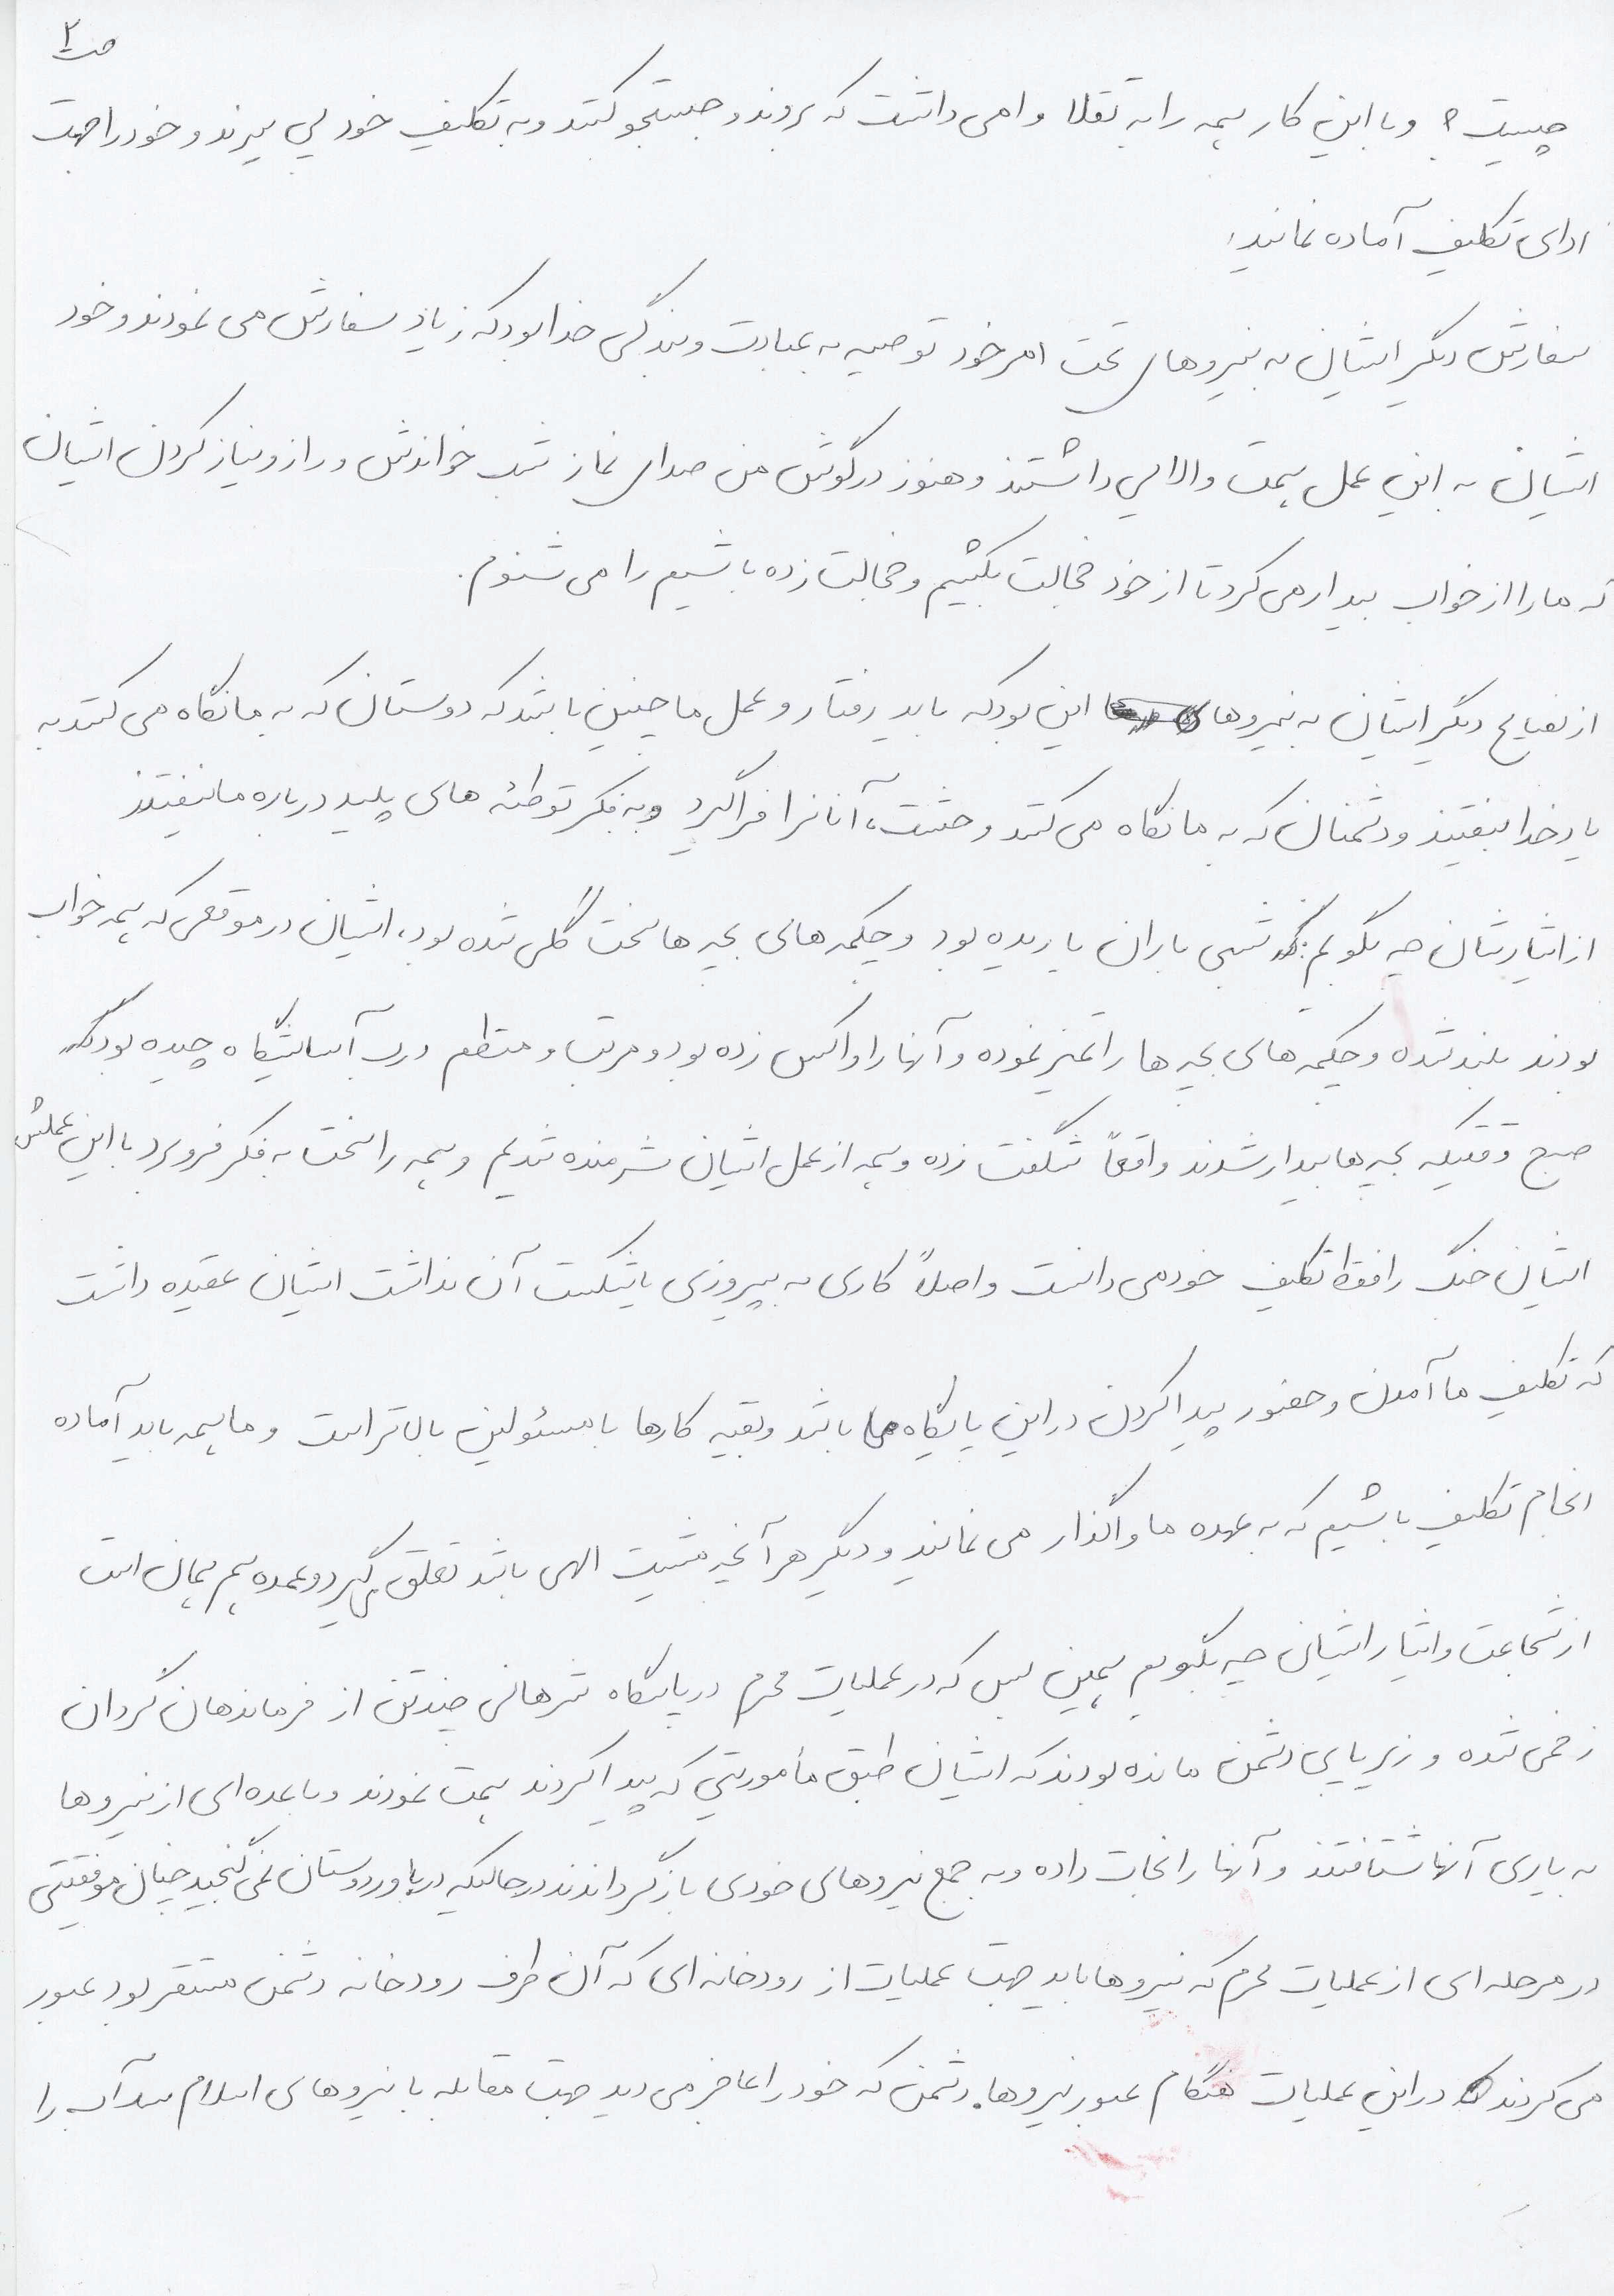 ص ۲
چیست؟ و با این کار همه را به تقلا وامی داشت که بروند و جستجو کنند و به تکلیف خود پی ببرند و خود را جهت
ادای تکلیف آماده نمایند.
سفارش دیگر ایشان به نیروهای تحت امر خود توصیه به عبادت و بندگی خدا بود که زیاد سفارش می نمودند و خود
ایشان به این عمل همت والایی داشتند و هنوز در گوش من صدای نماز شب خواندش و راز و نیاز کردن ایشان
که ما را از خواب بیدار می کرد تا از خود خجالت بکشیم و خجالت زده باشیم را می شنوم.
از نصایح دیگر ایشان به نیروها این بود که باید رفتار و عمل ما چنین باشد که دوستان که به ما نگاه می کنند به
یاد خدا بیفتند و دشمنان که به ما نگاه می کنند وحشت، آنانرا فراگیرد و به فکر توطئه های پلید درباره ما نیفتند
از ایثارشان چه بگویم: شبی باران باریده بود و چکمه های بچه ها سخت گلی شده بود، ایشان در موقعی که همه خواب
بودند بلند شده و چکمه های بچه ها را تمیز نموده و آنها را واکس زده بود و مرتب و منظم درب آسایشگاه چیده بود
صبح وقتیکه بچه ها بیدار شدند واقعاً شگفت زده و همه از عمل ایشان شرمنده شدیم و همه را سخت به فکر فرو برد با این عملش
ایشان جنگ را فقط تکلیف خود می دانست و اصلاً کاری به پیروزی یا شکست آن نداشت ایشان عقیده داشت
که تکلیف ما آمدن و حضور پیدا کردن در این پایگاه ها باشد و بقیه کارها با مسئولین بالاتر است و ما همه باید آماده
انجام تکلیف باشیم که به عهده ما واگذار می نمایند و دیگر هر آنچه مشیت الهی باشد تعلق می گیرد و عمده هم همان است
از شجاعت و ایثار ایشان چه بگویم همین بس که در عملیات محرم در پایگاه شرهانی چند تن از فرماندهان گردان
زخمی شده و زیر پای دشمن مانده بودند که ایشان طبق مأموریتی که پیدا کردند همت نمودند و با عده ای از نیروها
به یاری آنها شتافتند و آنها را نجات داده و به جمع نیروهای خودی بازگرداندند در حالیکه در باور دوستان نمی گنجید چنان موفقیتی
در مرحله ای از عملیات محرم که نیروها باید جهت عملیات از رودخانه ای که آن طرف رودخانه دشمن مستقر بود عبور
می کردند در این عملیات هنگام عبور نیروها. دشمن که خود را عاجز می دید جهت مقابله با نیروهای اسلام سد آب را